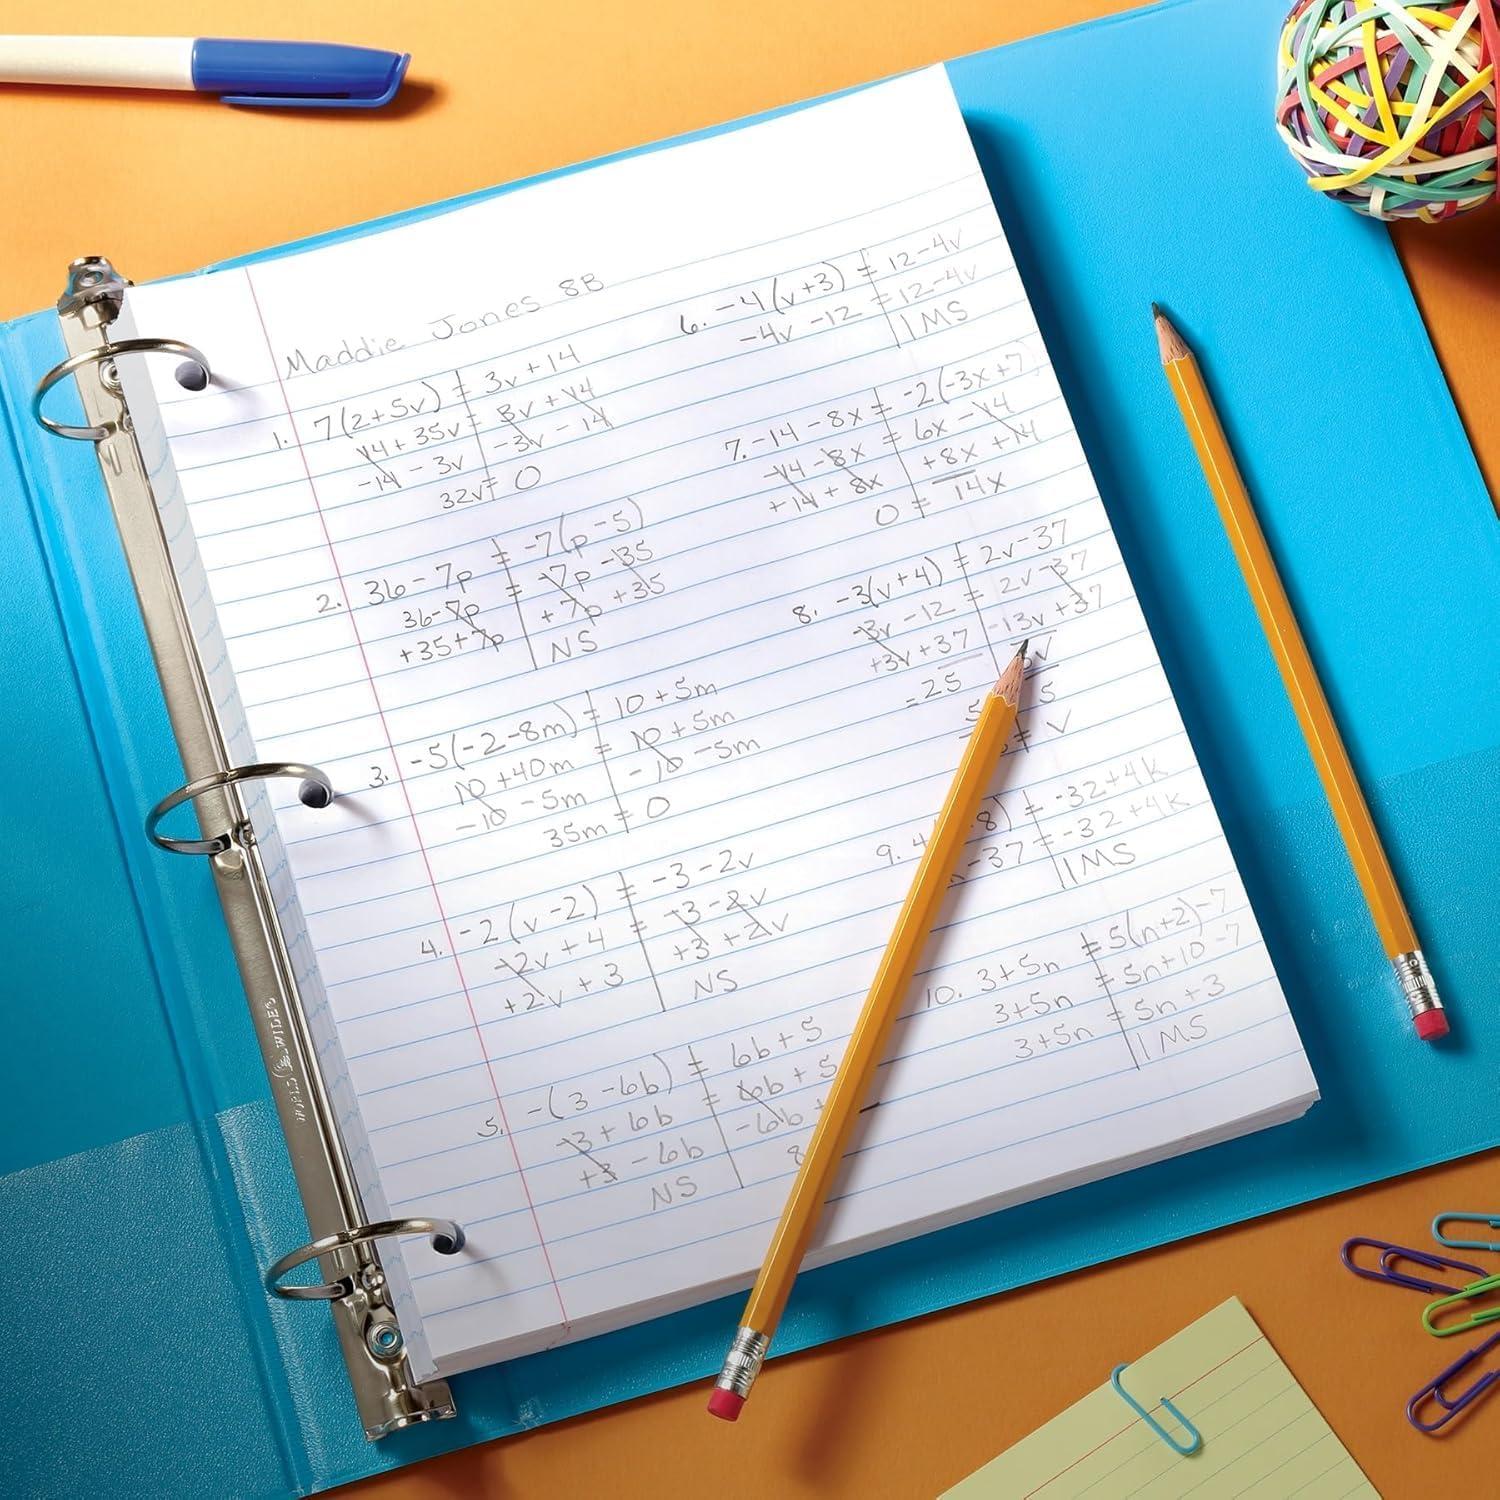 Maddie Jones 8B
1. 7(2+5v) = 3v+14
14+35v = 3v+14
-14 -3v -3v -14
32v = 0
2. 36-7p = -7(p-5)
36-7p = -7p-35
+35+7p +7p +35
NS
3. -5(-2-8m) = 10+5m
10+40m = 10+5m
-10 -5m -10 -5m
35m = 0
4. -2(v-2) = -3-2v
-2v+4 = -3-2v
+2v+3 +3+2v
NS
5. -(3-6b) = 6b+5
-3+6b = 6b+5
+3-6b -6b +
NS 8
6. -4(v+3) = 12-4v
-4v-12 = 12-4v
IMS
7. -14-8x = -2(-3x+7)
-14-8x = 6x-14
+14+8x +8x+14
0 = 14x
8. -3(v+4) = 2v-37
-3v-12 = 2v-37
+3v+37 -13v+37
=25 5v
5 5
= v
9. 4( -8) = -32+4k
-37 = -32+4k
IMS
10. 3+5n = 5(n+2)-7
3+5n = 5n+10-7
3+5n = 5n+3
IMS
WORLD WIDE®